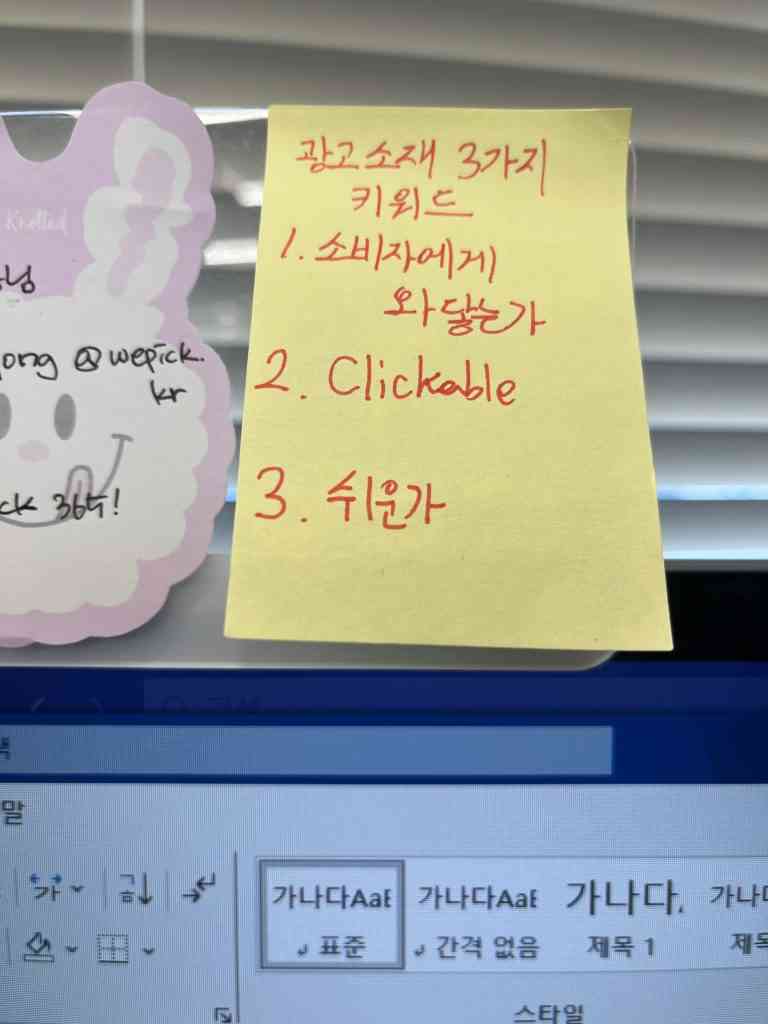 Knotted
@wepick.
kr
365!
광고소재 3가지
키워드
1. 소비자에게
와닿는가
2. Clickable
3. 쉬운가
말
가나다AaB 가나다AaB 가나다 가나다
표준 간격 없음 제목 1
스타일